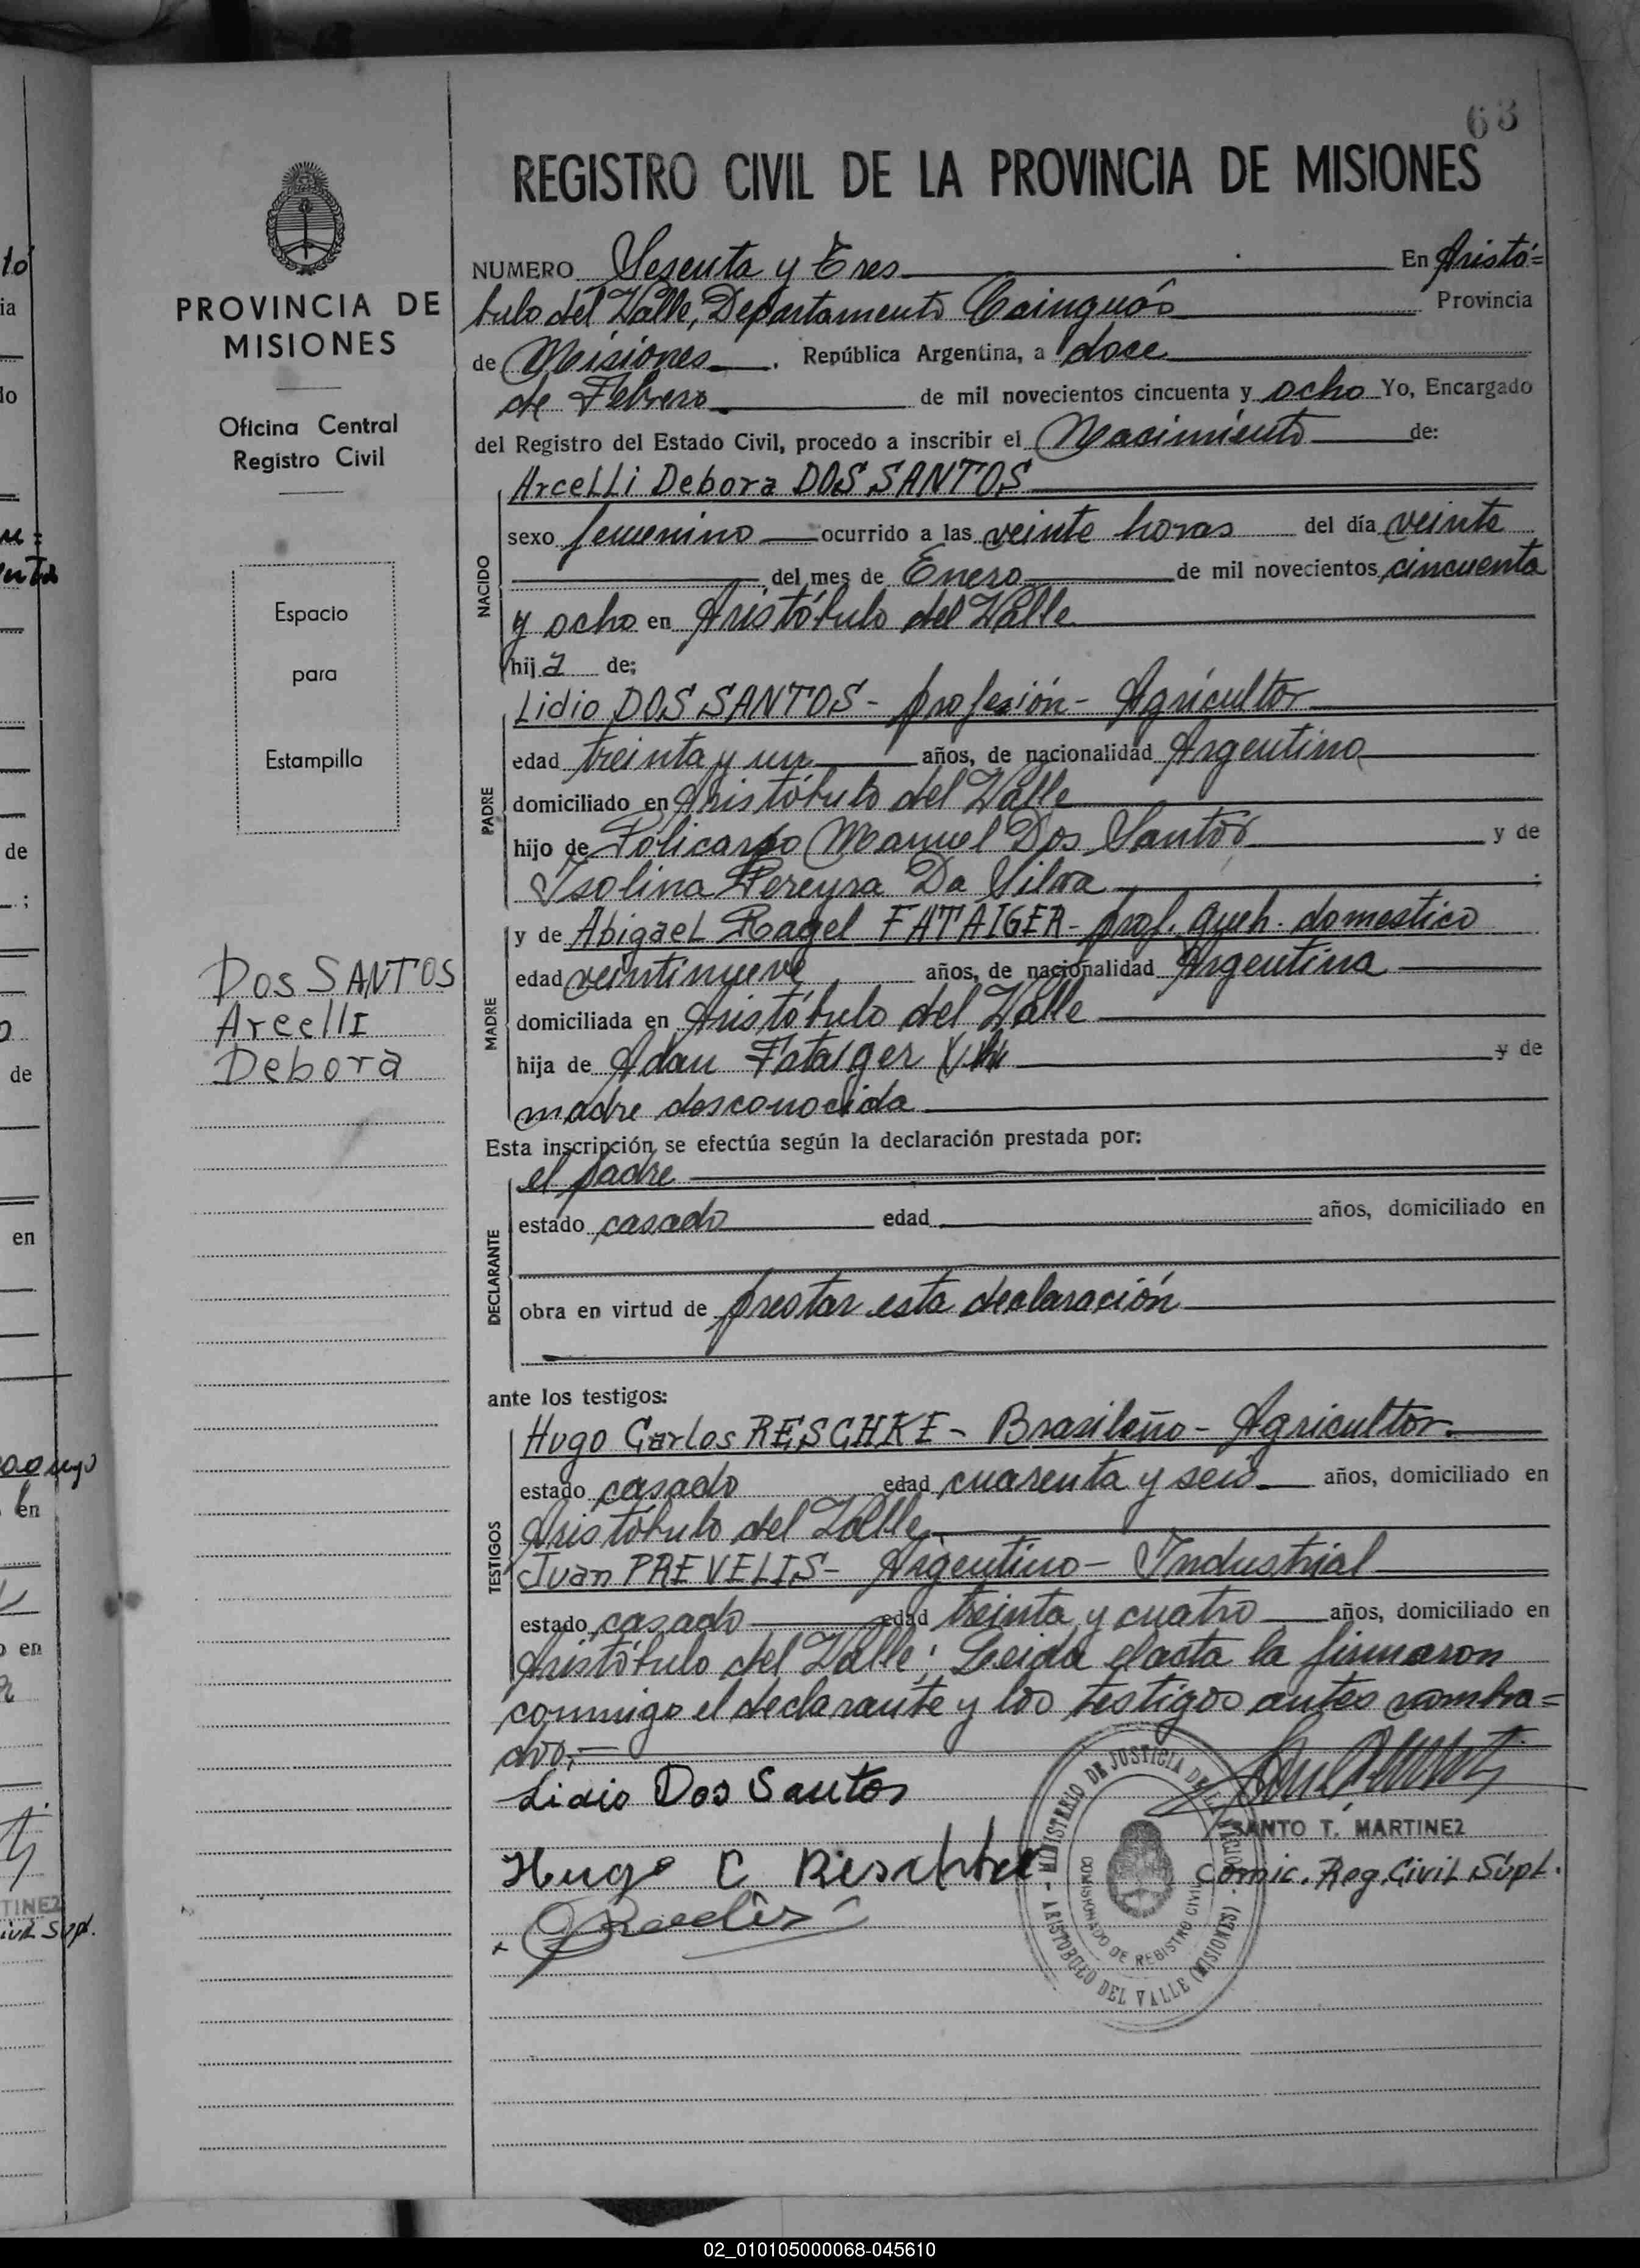 63
REGISTRO CIVIL DE LA PROVINCIA DE MISIONES
PROVINCIA DE
MISIONES
Oficina Central
Registro Civil
Espacio
para
Estampilla
Dos SANTOS
Arcelli
Debora
NUMERO Sesenta y Tres En Aristó=
bulo del Valle, Departamento Cainguás Provincia
de Misiones . República Argentina, a doce
de Febrero de mil novecientos cincuenta y ocho Yo, Encargado
del Registro del Estado Civil, procedo a inscribir el Nacimiento de:
NACIDO
Arcelli Debora DOS SANTOS
sexo femenino ocurrido a las veinte horas del día veinte
del mes de Enero de mil novecientos cincuenta
y ocho en Aristóbulo del Valle
hija de:
PADRE
Lidio DOS SANTOS - profesión - Agricultor
edad treinta y un años, de nacionalidad Argentino
domiciliado en Aristóbulo del Valle
hijo de Policarpo Manuel Dos Santos y de
Isolina Pereyra Da Silva
MADRE
y de Abigael Raqel FATAIGER - prof. queh. domestico
edad veintinueve años, de nacionalidad Argentina
domiciliada en Aristóbulo del Valle
hija de Adan Fataiger y de
madre desconocida
Esta inscripción se efectúa según la declaración prestada por:
DECLARANTE
el padre
estado casado edad años, domiciliado en
obra en virtud de prestar esta declaración
ante los testigos:
TESTIGOS
Hugo Carlos RESCHKE - Brasileño - Agricultor.
estado casado edad cuarenta y seis años, domiciliado en
Aristóbulo del Valle
Juan PREVELIS - Argentino - Industrial
estado casado edad treinta y cuatro años, domiciliado en
Aristóbulo del Valle; Leida el acta la firmaron
conmigo el declarante y los testigos antes nombra=
dos.-
Lidio Dos Santos
SANTO T. MARTINEZ
Hugo C Reschke
Comic. Reg. Civil Supl.
MINISTERIO DE JUSTICIA DE LA NACION
COMISIONADO DE REGISTRO CIVIL
ARISTOBULO DEL VALLE (MISIONES)
02_010105000068-045610